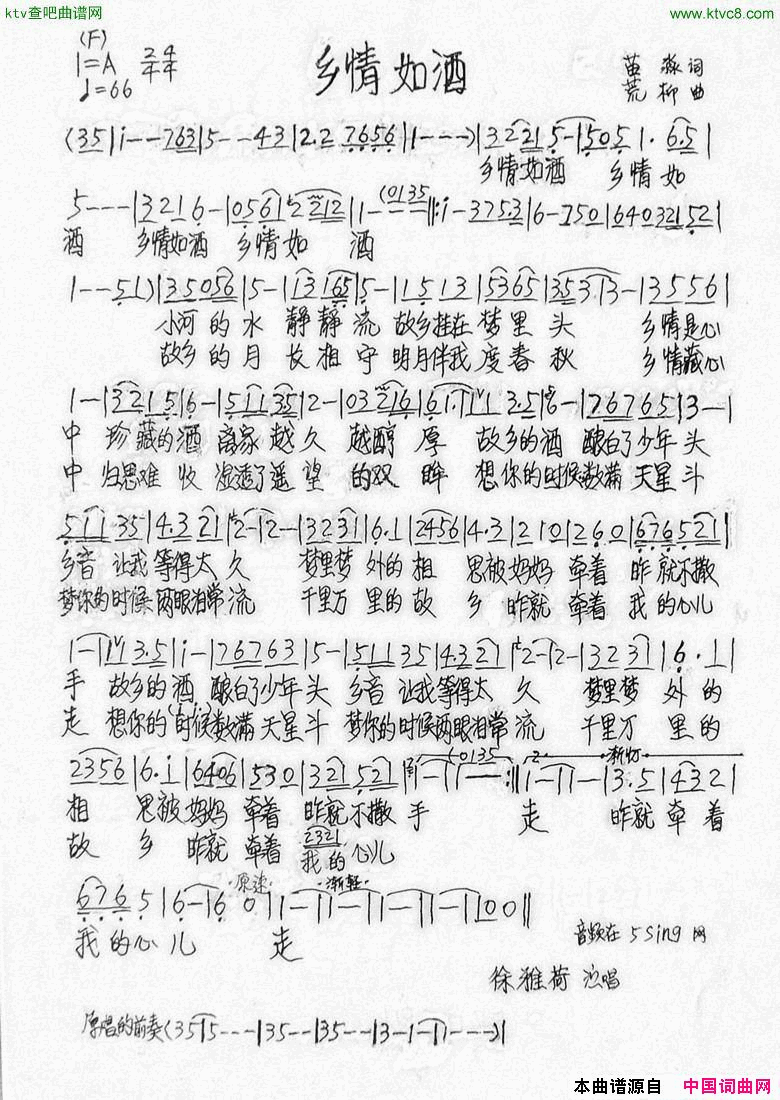 ktv查吧曲谱网
www.ktvc8.com
(F)
1=A 2/4 4/4
♩=66
乡情如酒
苗淼词
荒柳曲
(35|i--763|5--43|2.2 7656|1---)|3221 5-|1505|1. 6.5|
乡情如酒 乡情如
5---|3216-|056|2 2212|1-(0135||:i-3753|6-750|6403 2152|
酒 乡情如酒 乡情如 酒
1--51)|35056|5-|13165|5-|1513|5365|35313-|3556|
小河的水 静静流 故乡挂在梦里头 乡情是心
故乡的月 长相守 明月伴我度春秋 乡情藏心
1-|3215|6-|51135|2-|03216|61.1|1 3.5|6-|76765|3-|
中 珍藏的酒 离家越久 越醇厚 故乡的酒 酿白了少年头
中 归思难收 湿透了遥望的双眸 想你的时候数满天星斗
51135|4.321|2-2-|3231|6.1|2456|4.3|210|260|676521|
乡音让我等得太久 梦里梦外的相思被妈妈牵着 昨就不撒
梦你的时候两眼泪常流 千里万里的故乡昨就牵着我的心儿
1-|1 3.5|i-|76763|5-|51135|4.321|2-2-|3231|6.1|
手 故乡的酒 酿白了少年头 乡音让我等得太久 梦里梦外的
走 想你的时候数满天星斗 梦你的时候两眼泪常流 千里万里的
(0135 2. 渐慢
2356|6.i|6406|530|32152|1-|1-:||1-|1-|3.5|4321|
相思被妈妈牵着 昨就不撒手 走 昨就牵着
2321
故乡昨就牵着我的心儿
原速 渐轻
6765|6-|6 0|1-|1-|1-|1-|1-|100||
我的心儿 走
音频在5sing网
徐雅荷 演唱
原唱的前奏(35|5---|35--|35--|3-1-|1---)|
本曲谱源自 中国词曲网